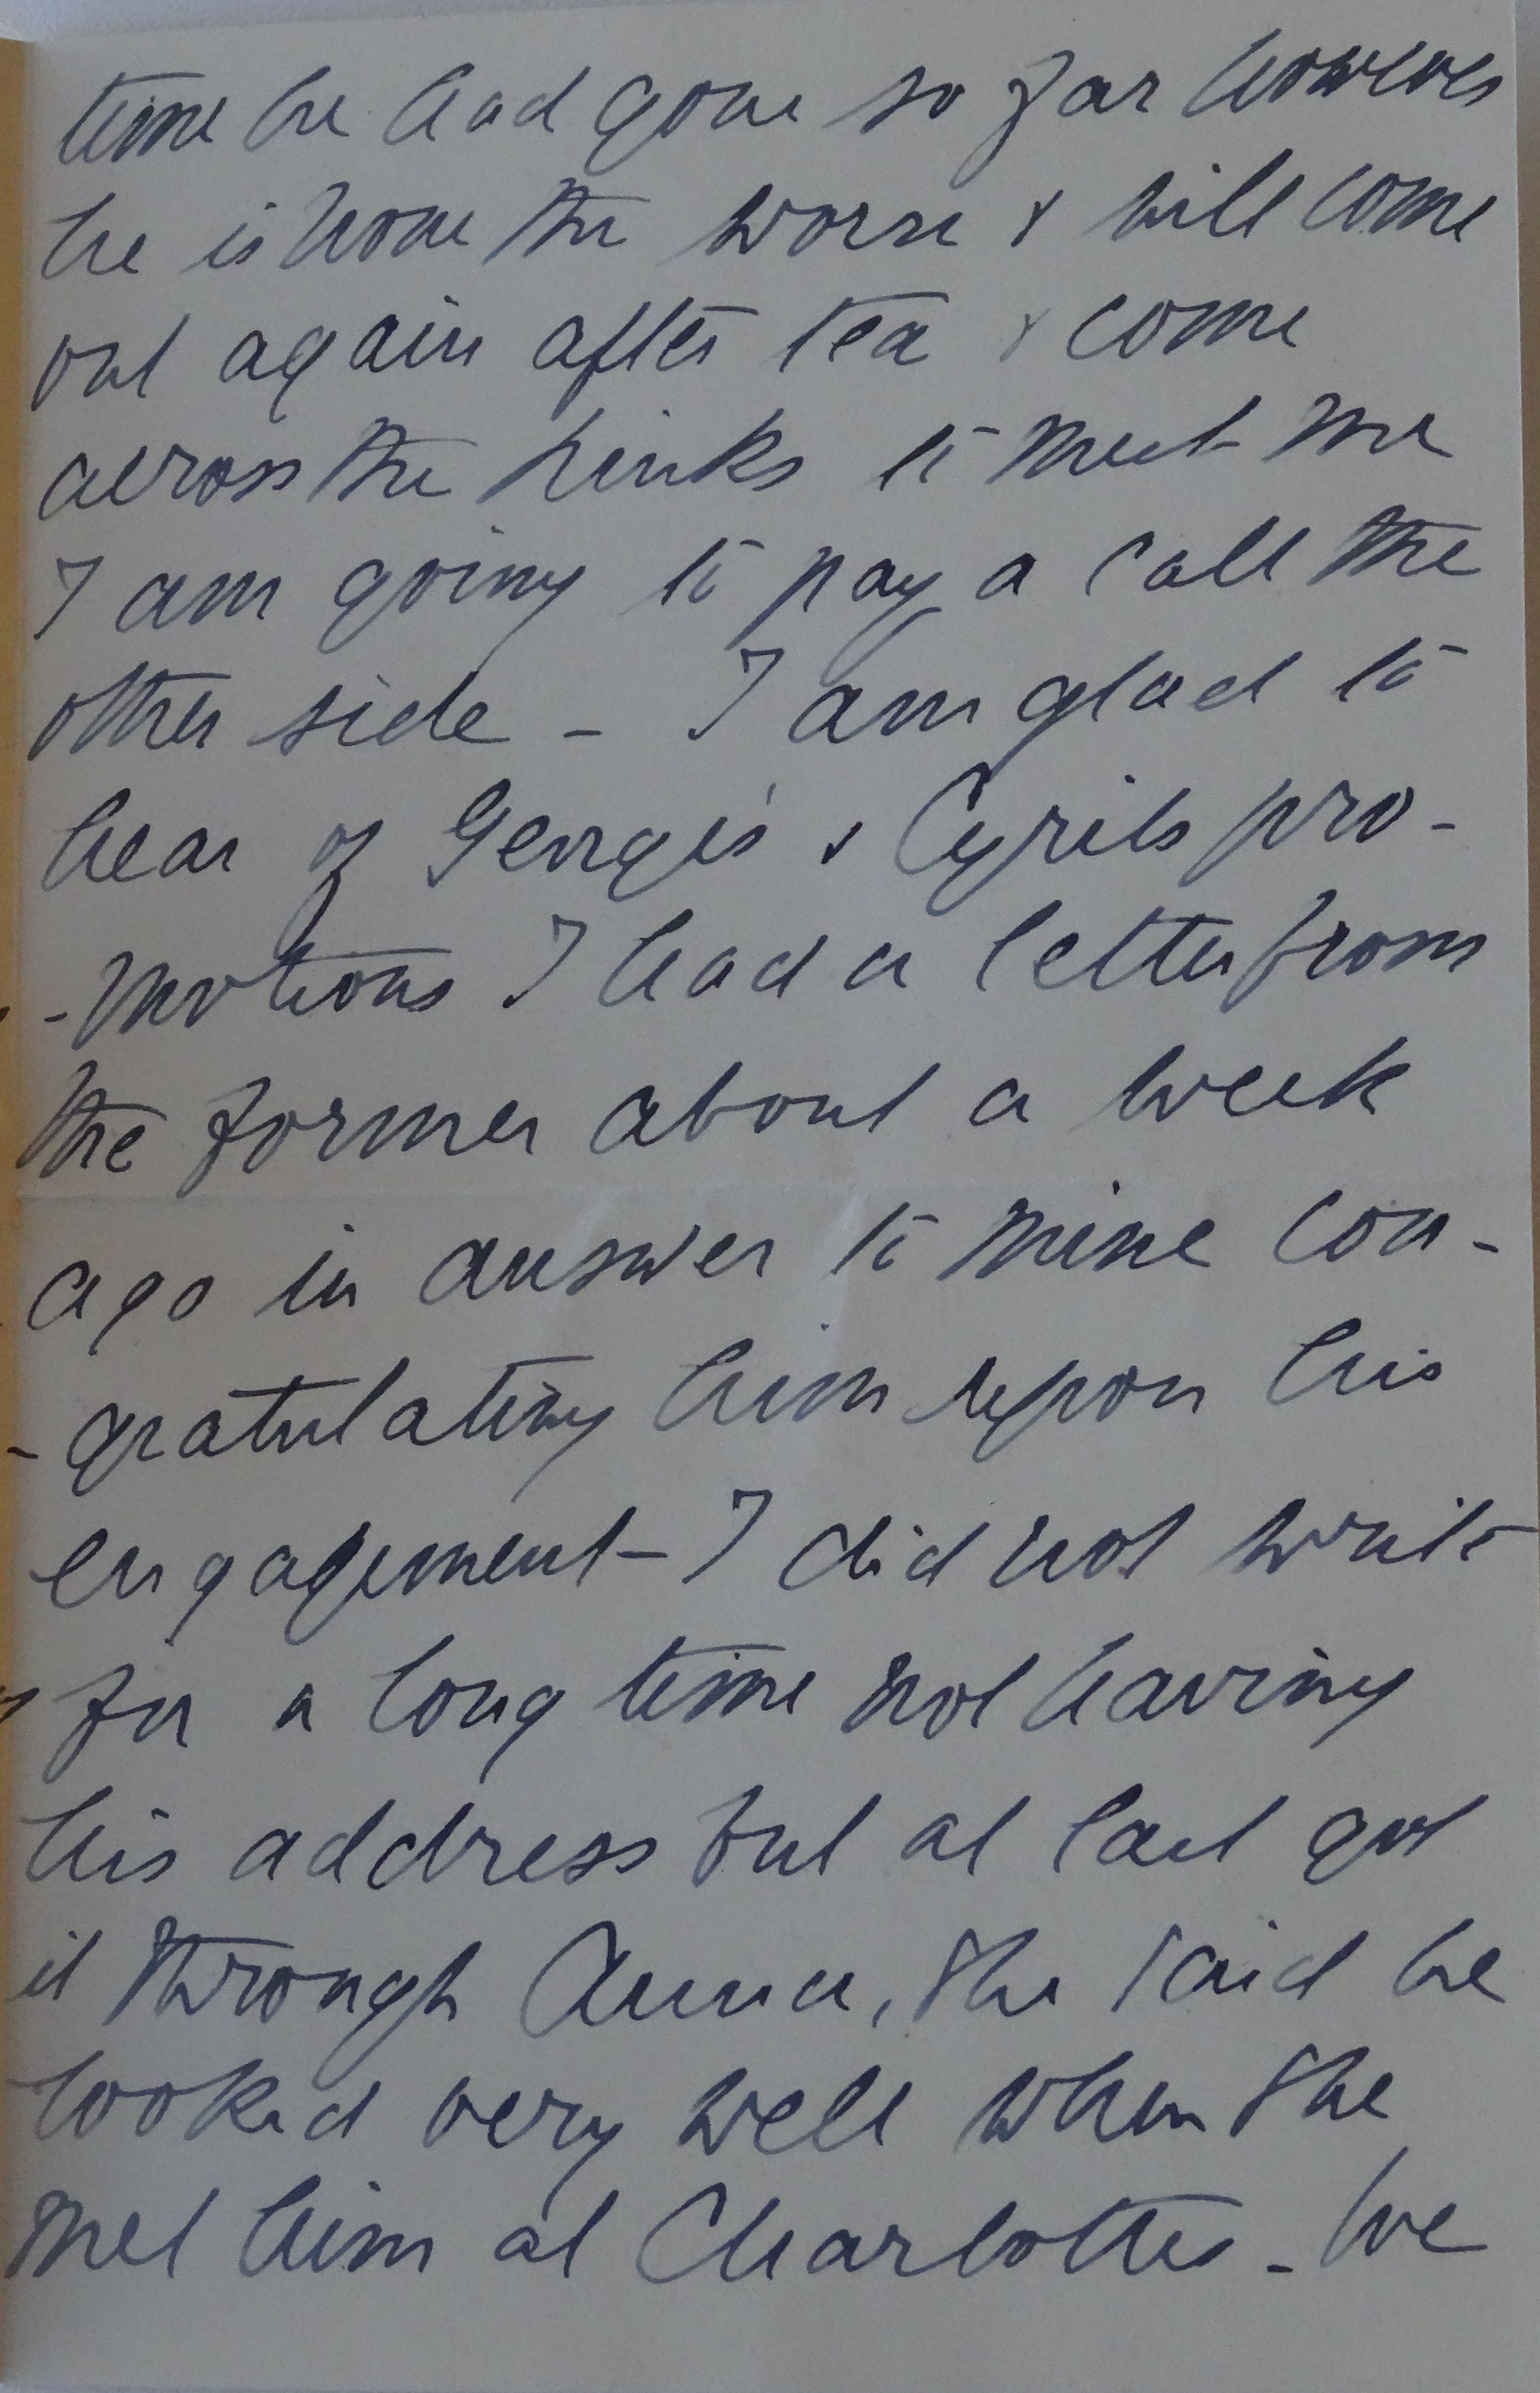 time he had gone so far however
he is none the worse & will come
out again after tea & come
across the Links to meet me
I am going to pay a call the
other side - I am glad to
hear of George's & Cyrils pro-
-motions I had a letter from
the former about a week
ago in answer to mine con-
-gratulating him upon his
engagement - I did not write
for a long time not having
his address but at last got
it through Anna, she said he
looked very well when she
met him at Charlottes - We